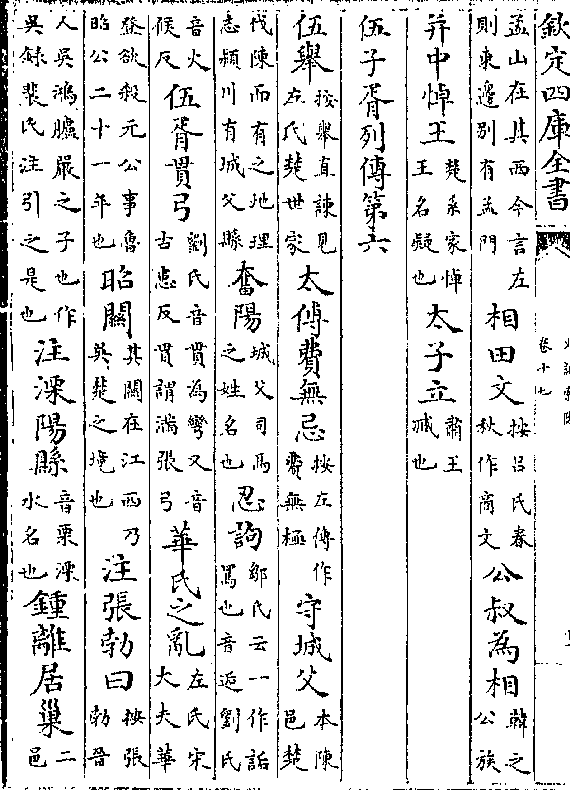 欽定四庫全書 史記索隱 卷十七
孟山在其西今言左則東邊别有孟門 相田文 按吕氏春秋作商文 公叔為相 韓之公族
并中悼王 楚系家悼王名疑也 太子立 肅王臧也
伍子胥列傳第六
伍舉 按舉直諫見左氏楚世家 太傅費無忌 按左傳作費無極 守城父 本陳邑楚
伐陳而有之地理志潁川有城父縣 奮陽 城父司馬之姓名也 忍訽 鄒氏云一作詬罵也音逅劉氏
音火候反 伍胥貫弓 劉氏音貫為彎又音古患反貫謂滿張弓 華氏之亂 左氏宋大夫華
登欲殺元公事魯昭公二十一年也 昭關 其關在江西乃吳楚之境也 注張勃曰 按張勃晉
人吳鴻臚嚴之子也作吳録裴氏注引之是也 注溧陽縣 音栗溧水名也 鍾離居巢 二邑